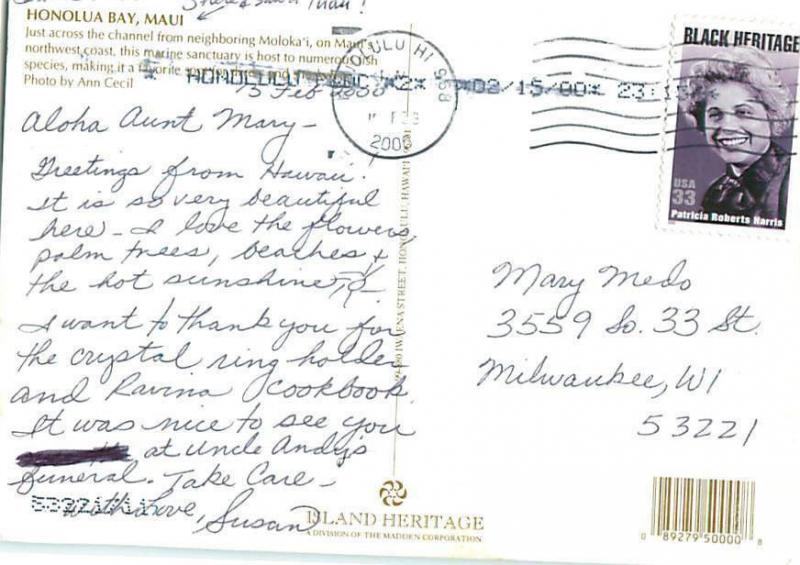 HONOLUA BAY, MAUI
Just across the channel from neighboring Moloka'i, on Maui's
northwest coast, this marine sanctuary is host to numerous fish
species, making it a favorite
Photo by Ann Cecil
13 Feb 2000
Aloha Aunt Mary -
Greetings from Hawaii!
It is so very beautiful
here - I love the flowers,
palm trees, beaches &
the hot sunshine,
I want to thank you for
the crystal ring holder
and Ravina Cookbook.
It was nice to see you
at Uncle Andy's
funeral. Take Care -
With love, Susan
HONOLULU HI 968
2000
HONOLULU P&DC *2* *02/15/00*
BLACK HERITAGE
USA
33
Patricia Roberts Harris
Mary Medo
3559 So. 33 St.
Milwaukee, WI
53221
HONOLULU, HAWAI'I
ISLAND HERITAGE
A DIVISION OF THE MADDEN CORPORATION
0 89279 50000 8